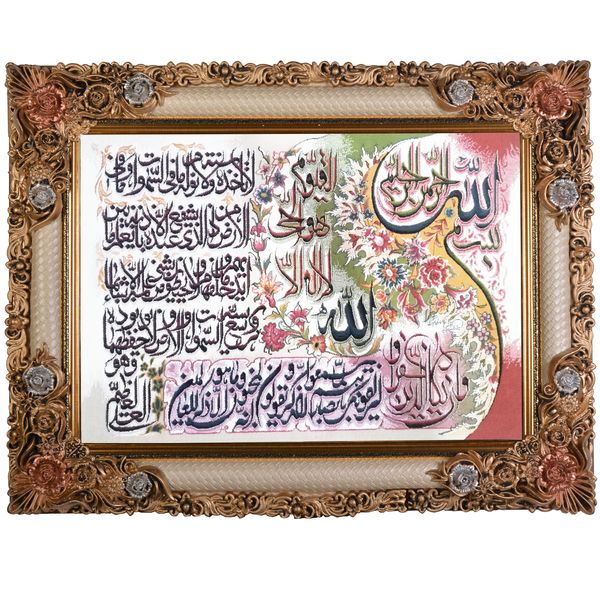 بسم الله الرحمن الرحيم
الله لا اله الا
هو الحي
القيوم
لا تأخذه سنة ولا نوم له ما في السموات وما في
الارض من ذا الذي يشفع عنده الا باذنه يعلم ما بين
ايديهم وما خلفهم ولا يحيطون بشيء من علمه الا بما شاء
وسع كرسيه السموات والارض ولا يؤده حفظهما
وهو
العلي العظيم
وان يكاد الذين كفروا
ليزلقونك بابصارهم لما سمعوا الذكر ويقولون انه لمجنون وما هو الا ذكر للعالمين